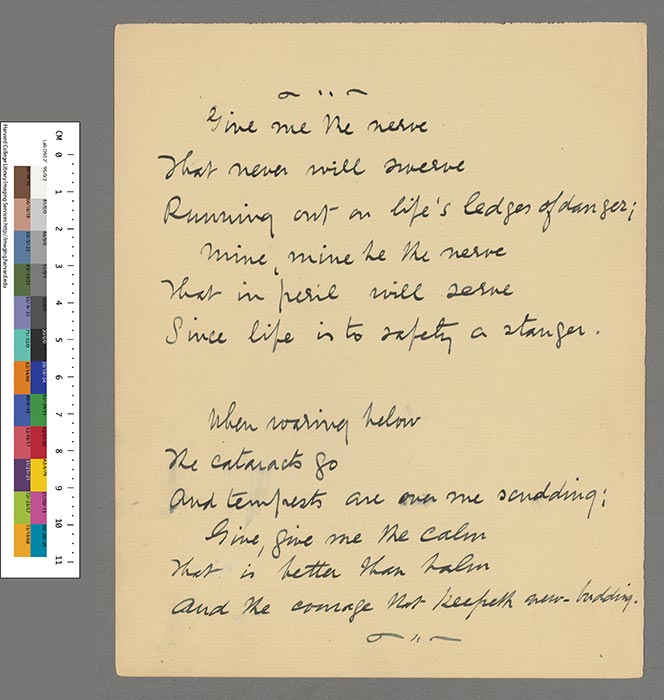 Give me the nerve
That never will swerve
Running out on life's ledges of danger;
Mine, mine be the nerve
That in peril will serve
Since life is to safety a stanger.
When roaring below
The cataracts go
And tempests are over me scudding;
Give, give me the calm
That is better than balm
And the courage that keepeth new-budding.
CM 0 1 2 3 4 5 6 7 8 9 10 11
Harvard College Library Imaging Services http://imaging.harvard.edu